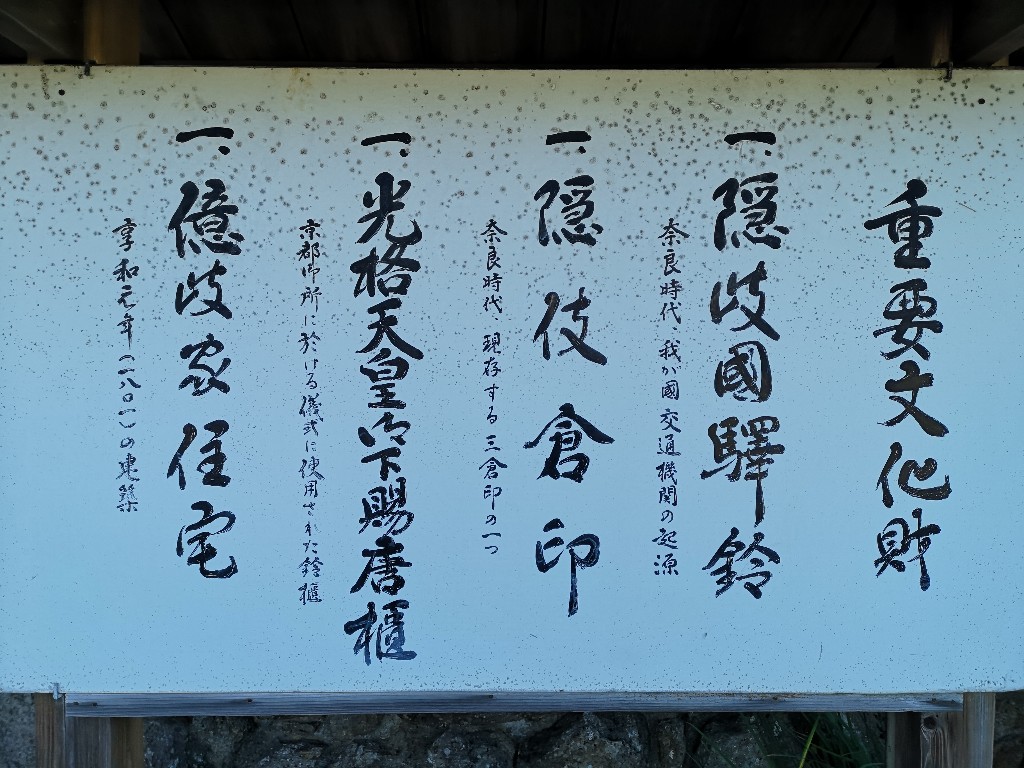 重要文化財
一、隠岐國驛鈴
奈良時代 我が國交通機関の起源
一、隠伎倉印
奈良時代 現存する三倉印の一つ
一、光格天皇御下賜唐櫃
京都御所に於ける儀式に使用された鈴櫃
一、億岐家住宅
享和元年(一八〇一)の建築